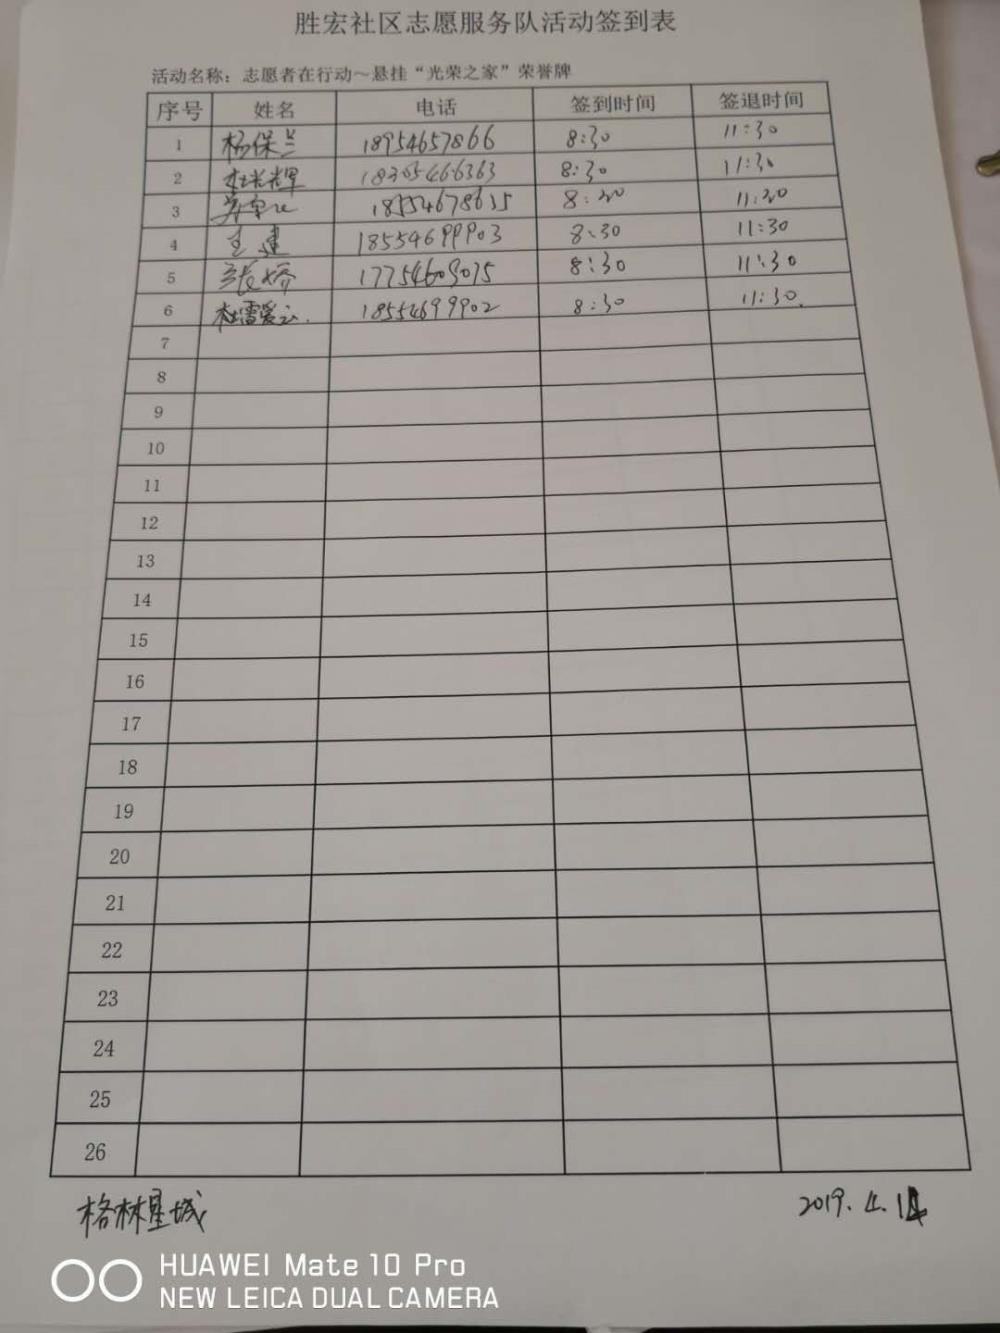 胜宏社区志愿服务队活动签到表
活动名称：志愿者在行动～悬挂“光荣之家”荣誉牌
序号 姓名 电话 签到时间 签退时间
1 杨保兰 18954657866 8:30 11:30
2 18305466363 8:30 11:30
3 18554678615 8:30 11:30
4 王建 18554699903 8:30 11:30
5 张娇 17754609075 8:30 11:30
6 杜雷爱云. 18554699902 8:30 11:30.
7
8
9
10
11
12
13
14
15
16
17
18
19
20
21
22
23
24
25
26
格林星城 2019.4.14
HUAWEI Mate 10 Pro
NEW LEICA DUAL CAMERA